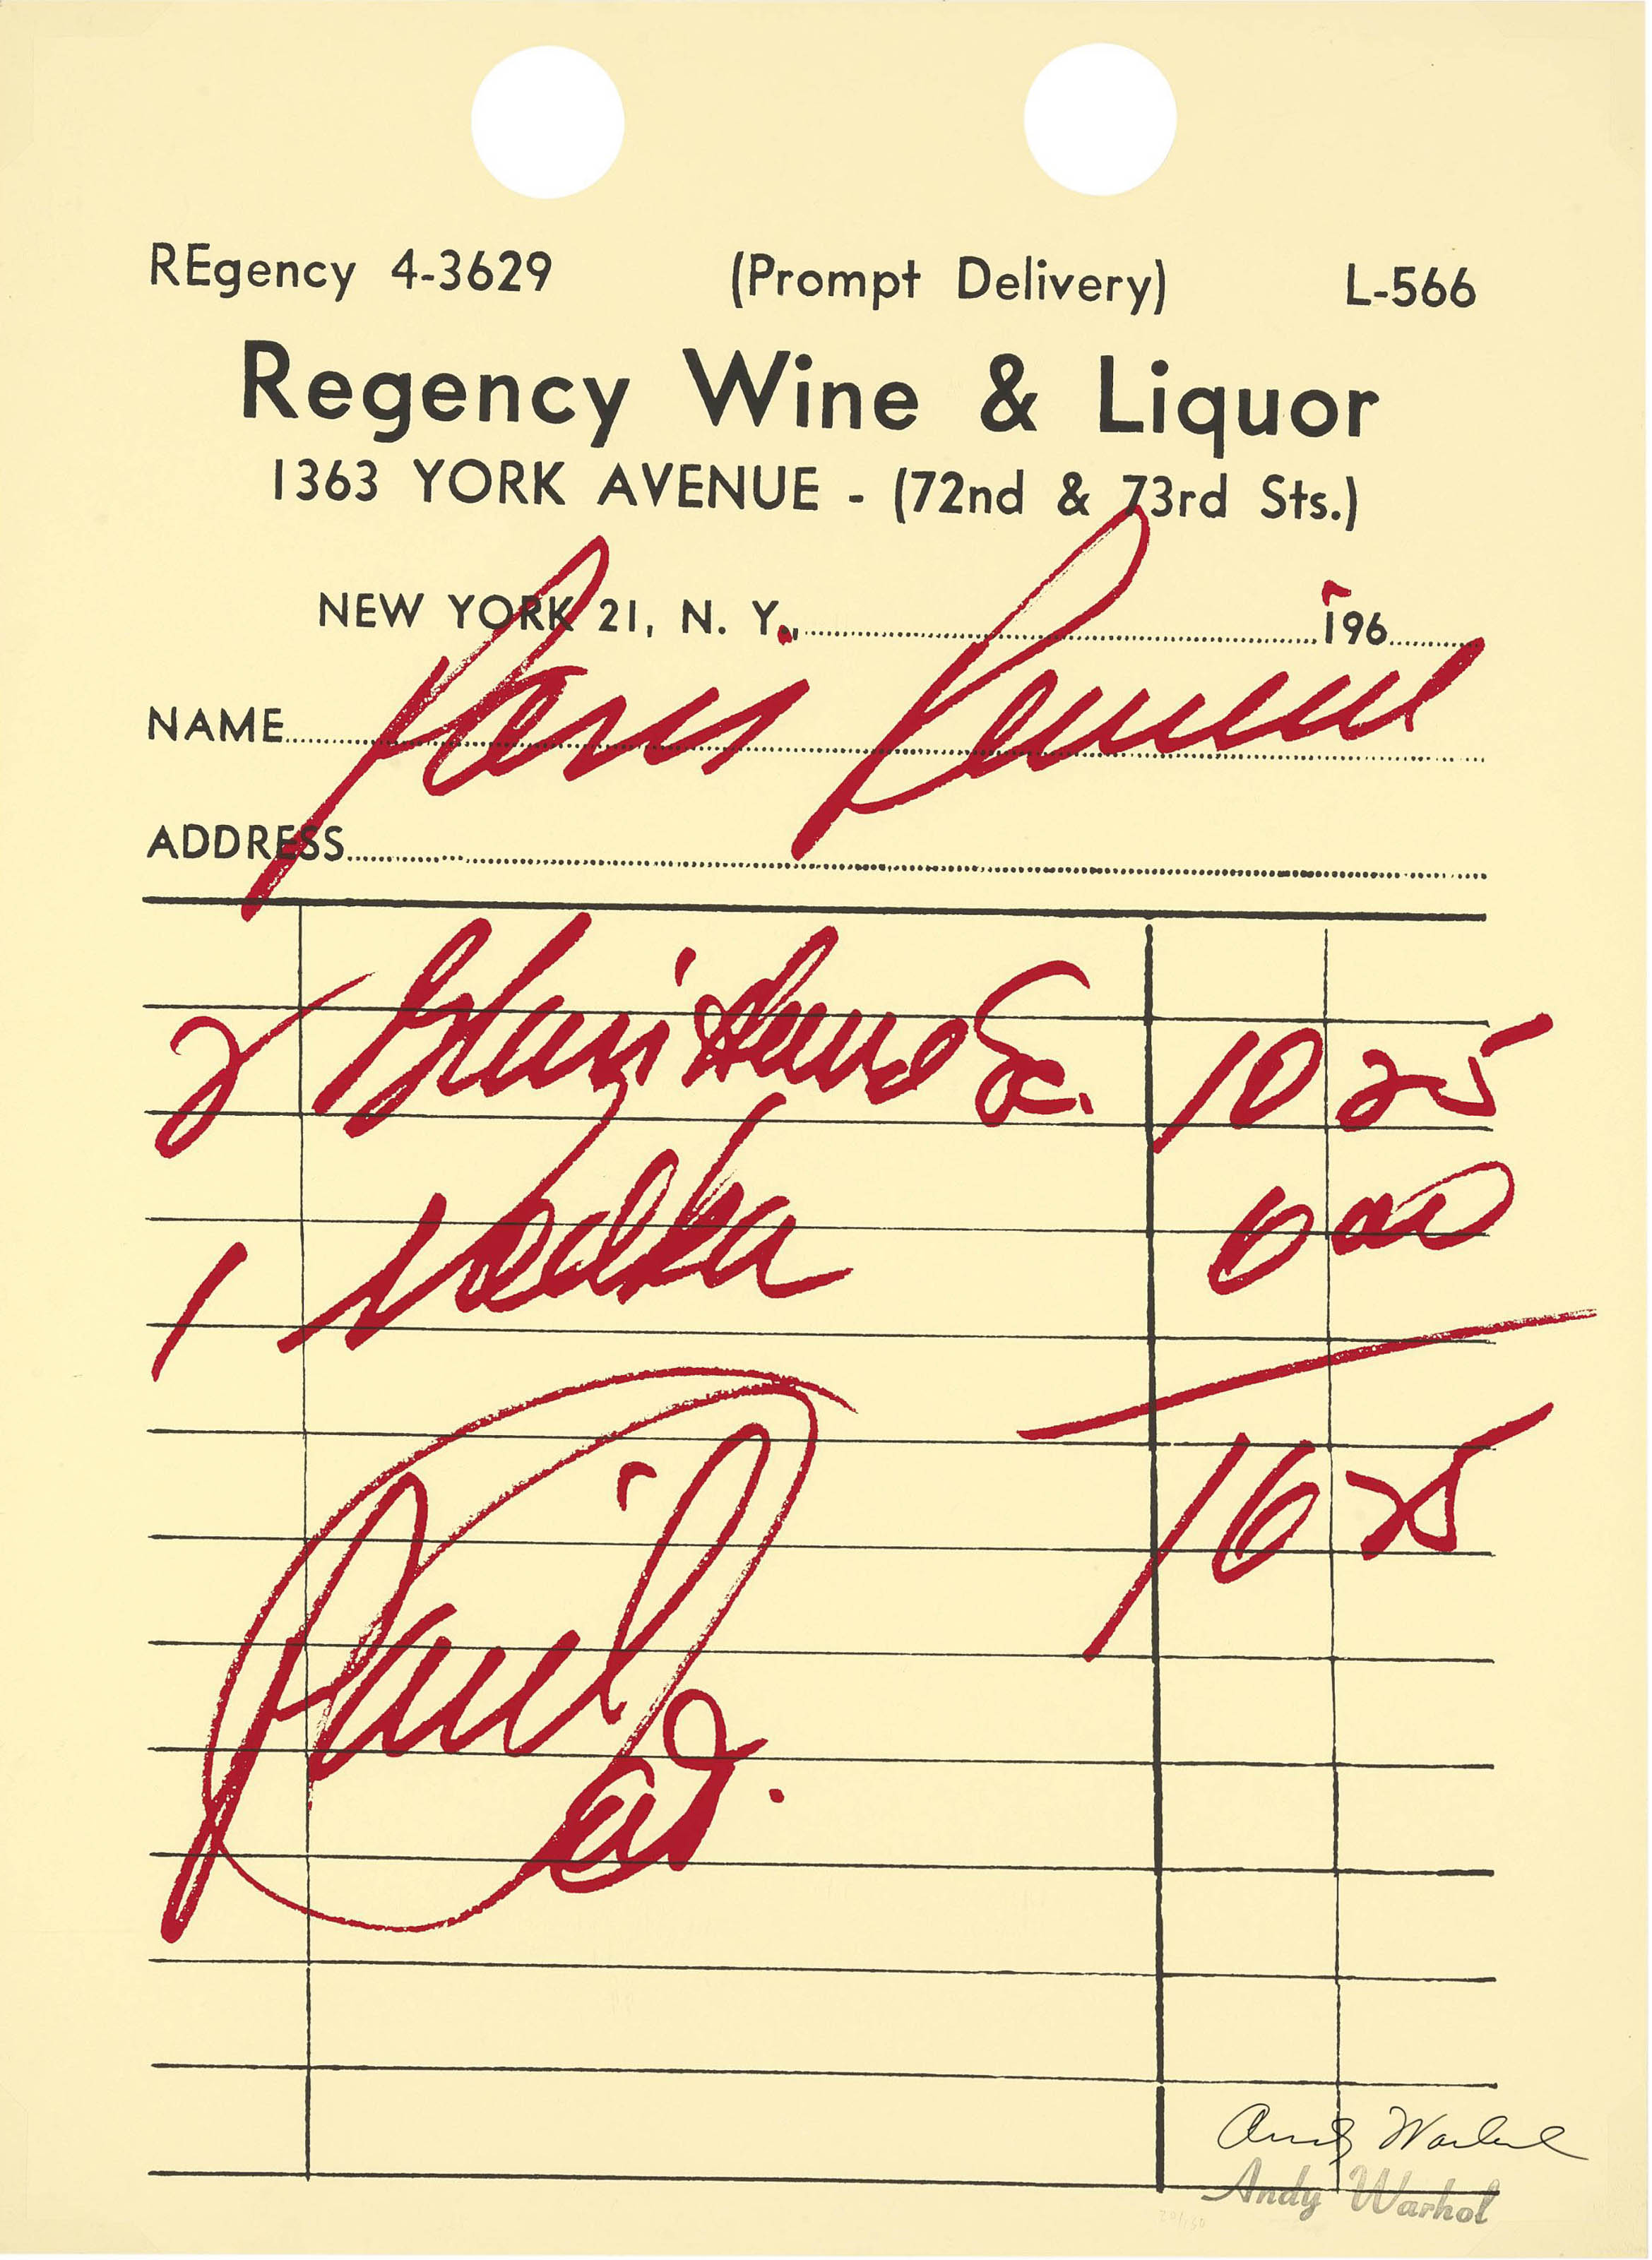 REgency 4-3629 (Prompt Delivery) L-566
Regency Wine & Liquor
1363 YORK AVENUE - (72nd & 73rd Sts.)
NEW YORK 21, N. Y., 196
NAME Paris Review
ADDRESS
2 Sc. 10 25
1 Vodka 6 00
16 25
Paid
Andy Warhol
Andy Warhol